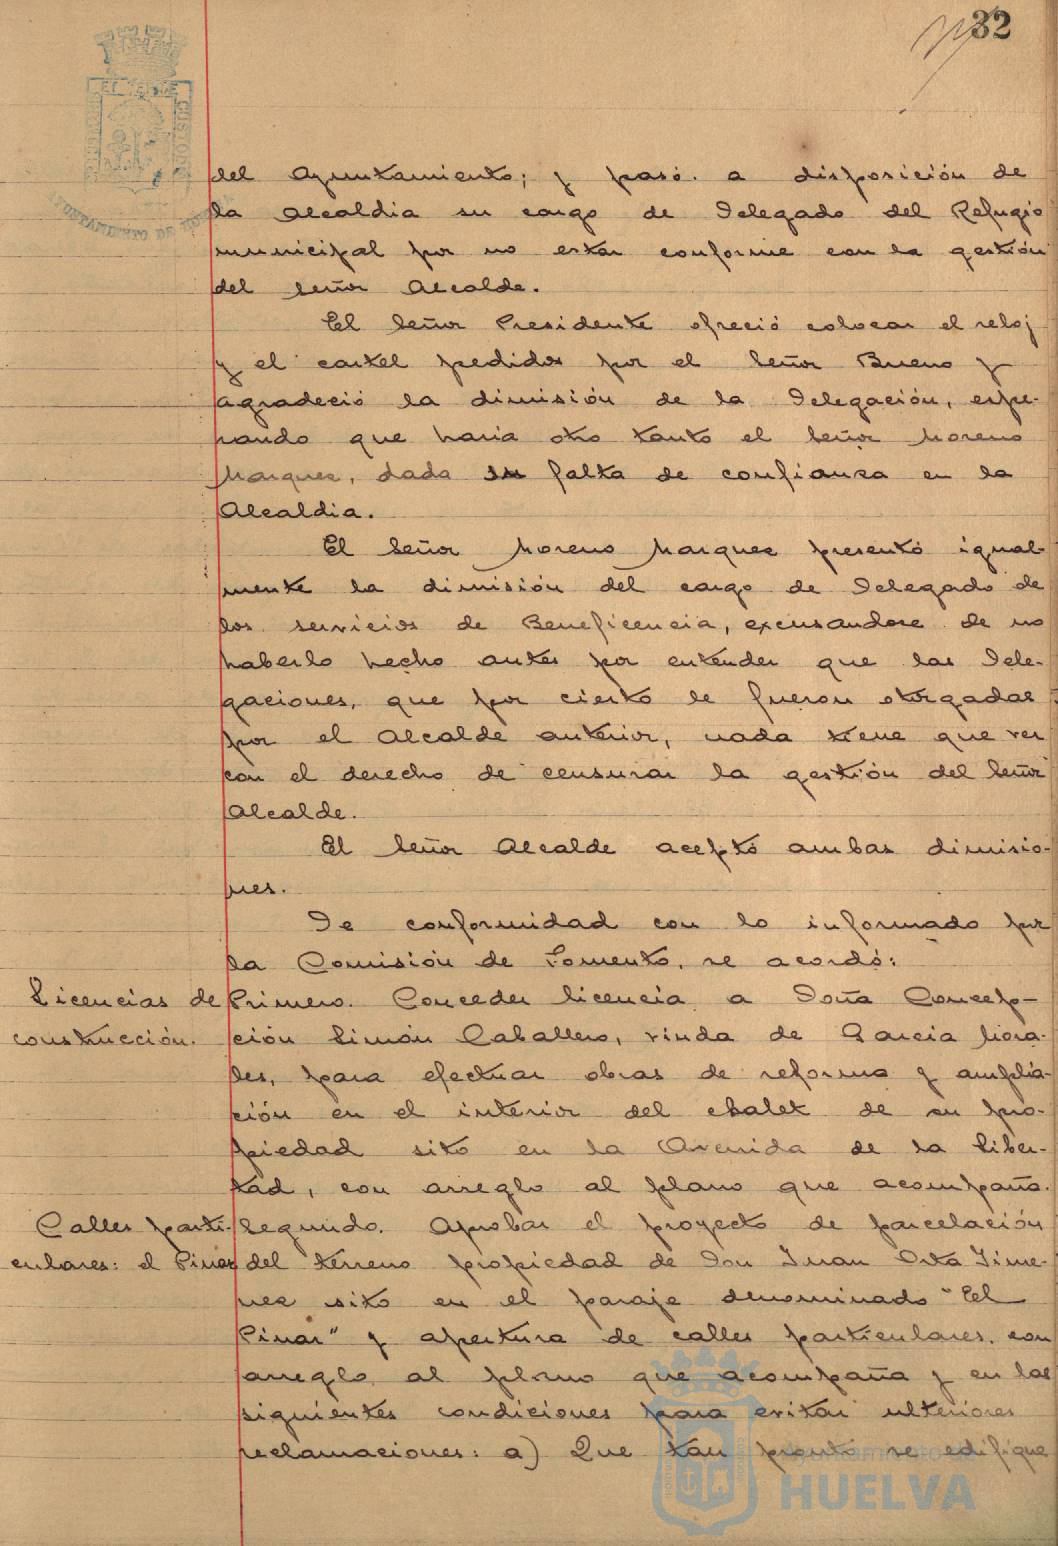 32
del Ayuntamiento; y pasó a disposición de
la Alcaldia su cargo de Delegado del Refugio
municipal por no estar conforme con la gestión
del Señor Alcalde.
El Señor Presidente ofreció colocar el reloj
y el cartel pedidos por el Señor Bueno y
agradeció la dimisión de la Delegación, espe-
rando que haria otro tanto el Señor Moreno
Marquez, dada su falta de confianza en la
Alcaldia.
El Señor Moreno Marquez presentó igual-
mente la dimisión del cargo de Delegado de
los servicios de Beneficencia, excusandose de no
haberlo hecho antes por entender que las Dele-
gaciones, que por cierto le fueron otorgadas
por el Alcalde anterior, nada tiene que ver
con el derecho de censurar la gestión del Señor
Alcalde.
El Señor Alcalde aceptó ambas dimisio-
nes.
De conformidad con lo informado por
la Comisión de Fomento, se acordó:
Licencias de construcción.
Primero. Conceder licencia a Doña Concep-
ción Simón Caballero, viuda de Garcia Mora-
les, para efectuar obras de reforma y amplia-
ción en el interior del chalet de su pro-
piedad sito en la Avenida de la Liber-
tad, con arreglo al plano que acompaña.
Calles parti-
culares: el Pinar
Segundo. Aprobar el proyecto de parcelación
del terreno propiedad de Don Juan Orta Jime-
nez sito en el paraje denominado "El
Pinar" y apertura de calles particulares, con
arreglo al plano que acompaña y en las
siguientes condiciones para evitar ulteriores
reclamaciones: a) Que tan pronto se edifique
Ayuntamiento de
HUELVA